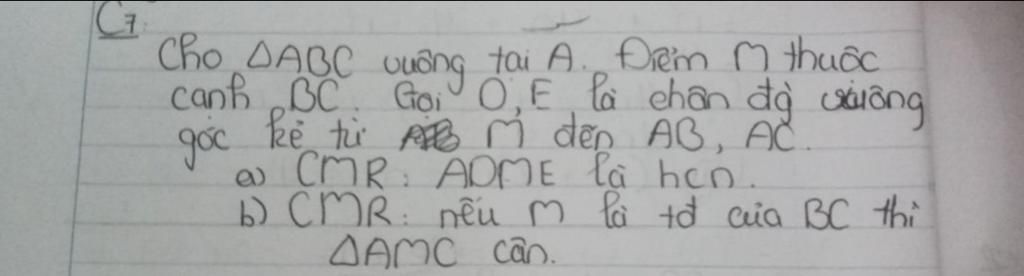 C7.
Cho ΔABC vuông tại A. Điểm M thuộc
cạnh BC. Gọi D, E là chân đg vuông
góc kẻ từ M đến AB, AC.
a) CMR: ADME là hcn.
b) CMR: nếu M là tđ của BC thì
ΔAMC cân.